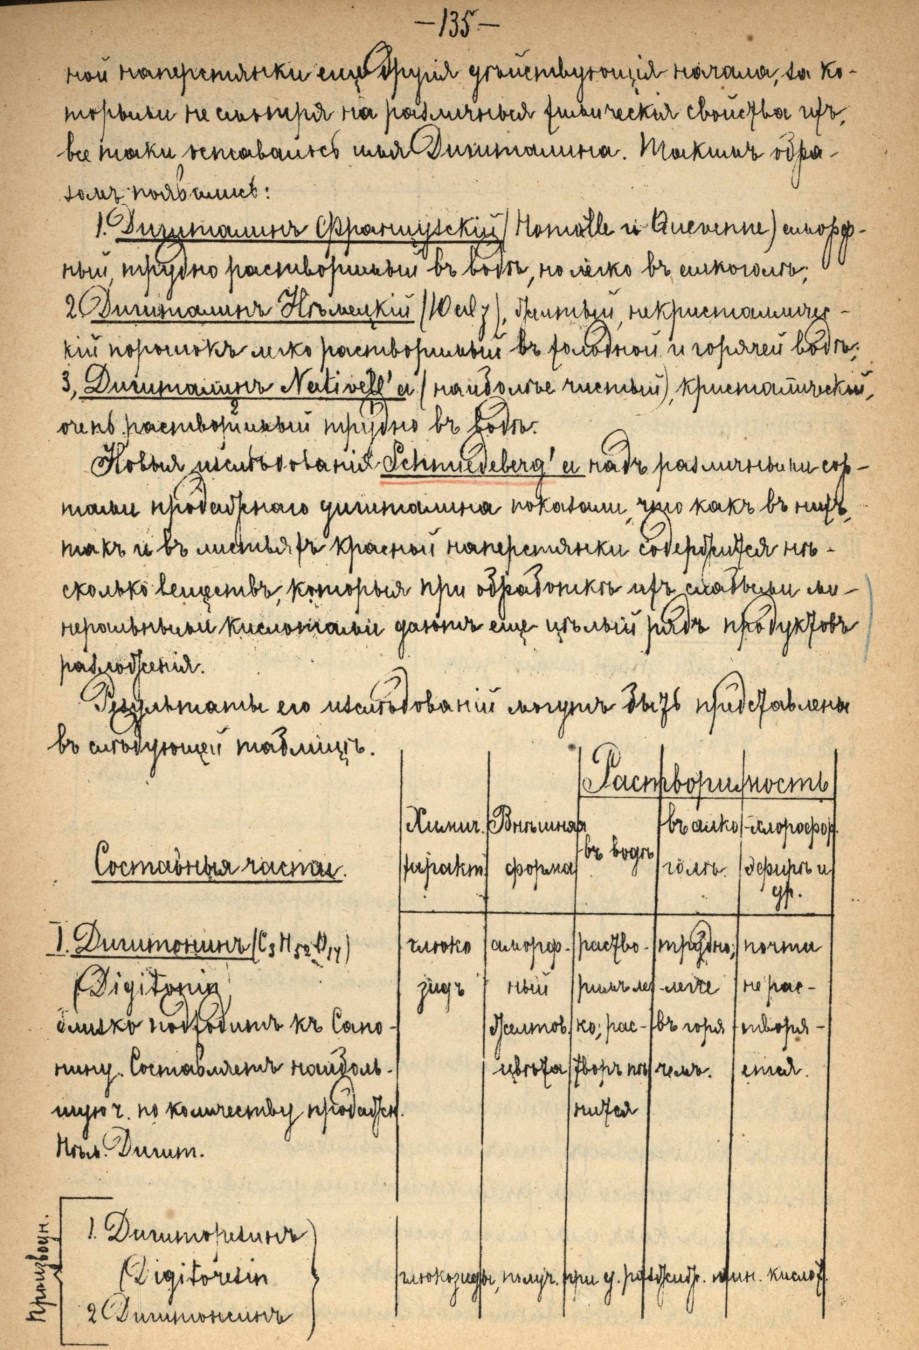 —135—
ной наперстянки еще другія дѣйствующія начала, за ко-
торыми не смотря на различныя химическія свойства ихъ,
все таки оставалось имя Дигиталина. Такимъ обра-
зомъ появились:
1. Дигиталинъ Французскій (Homolle и Quevenne) аморф-
ный, трудно растворимый въ водѣ, но легко въ алкоголѣ;
2 Дигиталинъ Нѣмецкій желтый, некристалличес-
кій порошокъ легко растворимый въ холодной и горячей водѣ;
3, Дигиталинъ Nativell'а (наиболѣе чистый), кристалическій,
очень растворимый трудно въ водѣ.
Новыя изслѣдованія Schmiedeberg'а надъ различными сор-
тами продажнаго дигиталина показали, что какъ въ нихъ,
такъ и въ листьяхъ красной наперстянки содержится нѣ-
сколько веществъ, которыя при обработкѣ ихъ слабыми ми-
неральными кислотами даютъ еще цѣлый рядъ продуктовъ
разложенія.
Результаты его изслѣдованій могутъ быть представлены
въ слѣдующей таблицѣ.
Растворимость
Составныя части.
Химич. характ.
Внѣшняя форма
въ водѣ
въ алкоголѣ.
хлорофор. эфирѣ и др.
I. Дигитонинъ
(Digitonin)
близко подходитъ къ Сапо-
нину. Составляетъ наиболь-
шую ч. по количеству продажн.
Нѣм. Дигит.
глюко
зидъ
аморф-
ный
желтов.
цвѣта
раство-
римъ лег
ко; рас-
творъ пѣ
нится
трудно;
-легче
въ горя
чемъ.
почти
не рас-
творя-
ется.
Производн.
1. Дигиторезинъ
(Digitoresin
2 Дигитонеинъ
глюкозиды, получ. при мин. кислот.